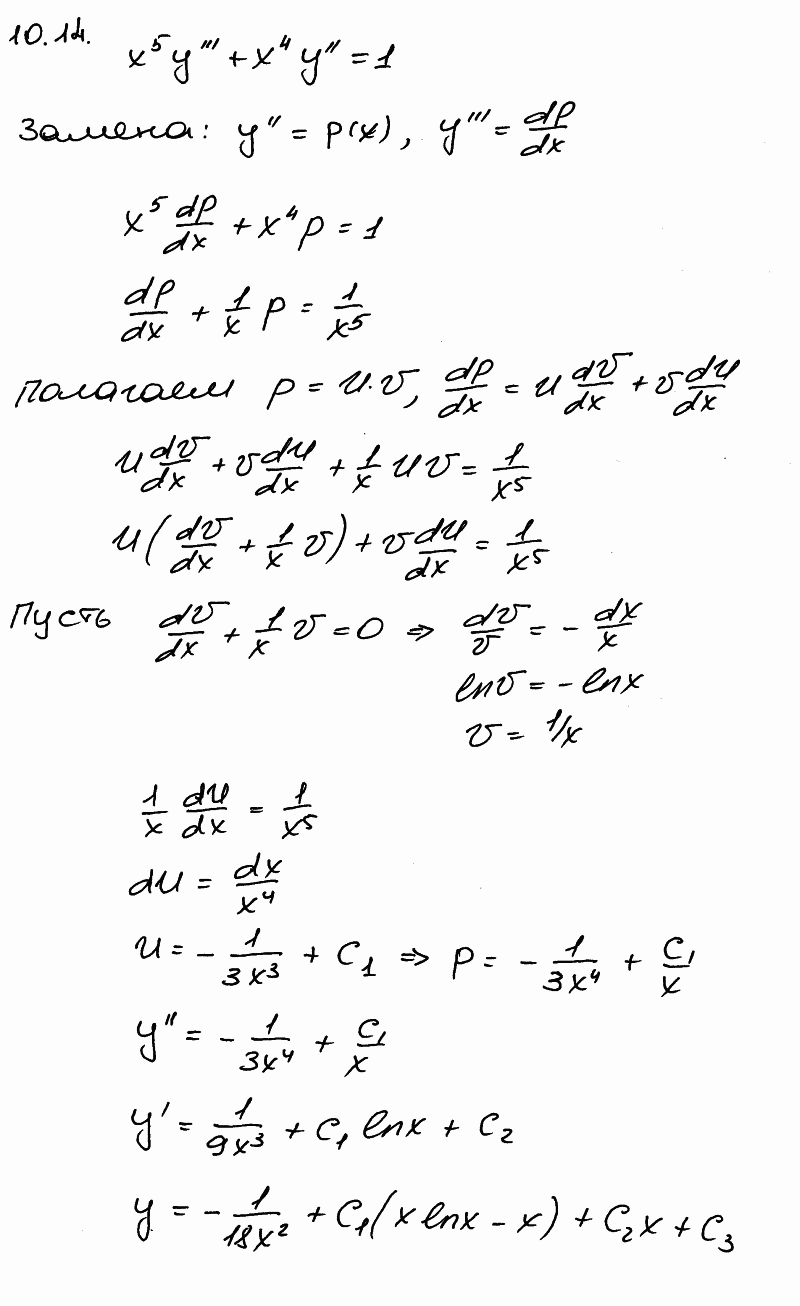 10.14.
x⁵y''' + x⁴y'' = 1
Замена: y'' = p(x), y''' = dp/dx
x⁵ dp/dx + x⁴p = 1
dp/dx + 1/x p = 1/x⁵
полагаем p = u·v, dp/dx = u dv/dx + v du/dx
u dv/dx + v du/dx + 1/x uv = 1/x⁵
u(dv/dx + 1/x v) + v du/dx = 1/x⁵
Пусть dv/dx + 1/x v = 0 ⇒ dv/v = - dx/x
lnv = - lnx
v = 1/x
1/x du/dx = 1/x⁵
du = dx/x⁴
u = - 1/3x³ + C₁ ⇒ p = - 1/3x⁴ + C₁/x
y'' = - 1/3x⁴ + C₁/x
y' = 1/9x³ + C₁ lnx + C₂
y = - 1/18x² + C₁(x lnx - x) + C₂x + C₃